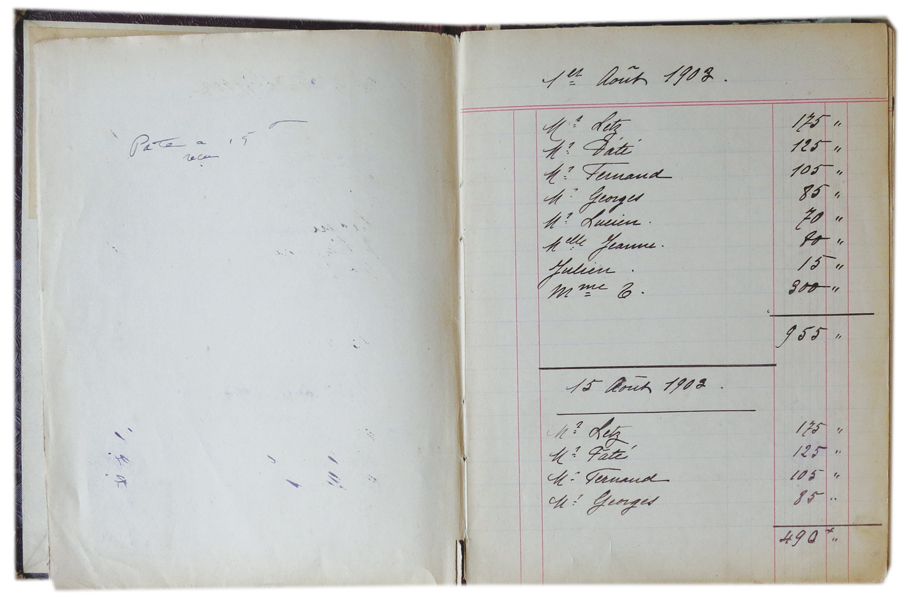 Pâté a
reçu
1er Août 1903.
Mr Letz 175 "
Mr Pâté 125 "
Mr Fernand 105 "
Mr Georges 85 "
Mr Lucien. 70 "
Melle Jeanne. 80 "
Julien. 15 "
Mme E. 300 "
955 "
15 Août 1903.
Mr Letz 175 "
Mr Pâté 125 "
Mr Fernand 105 "
Mr Georges 85 "
490 "